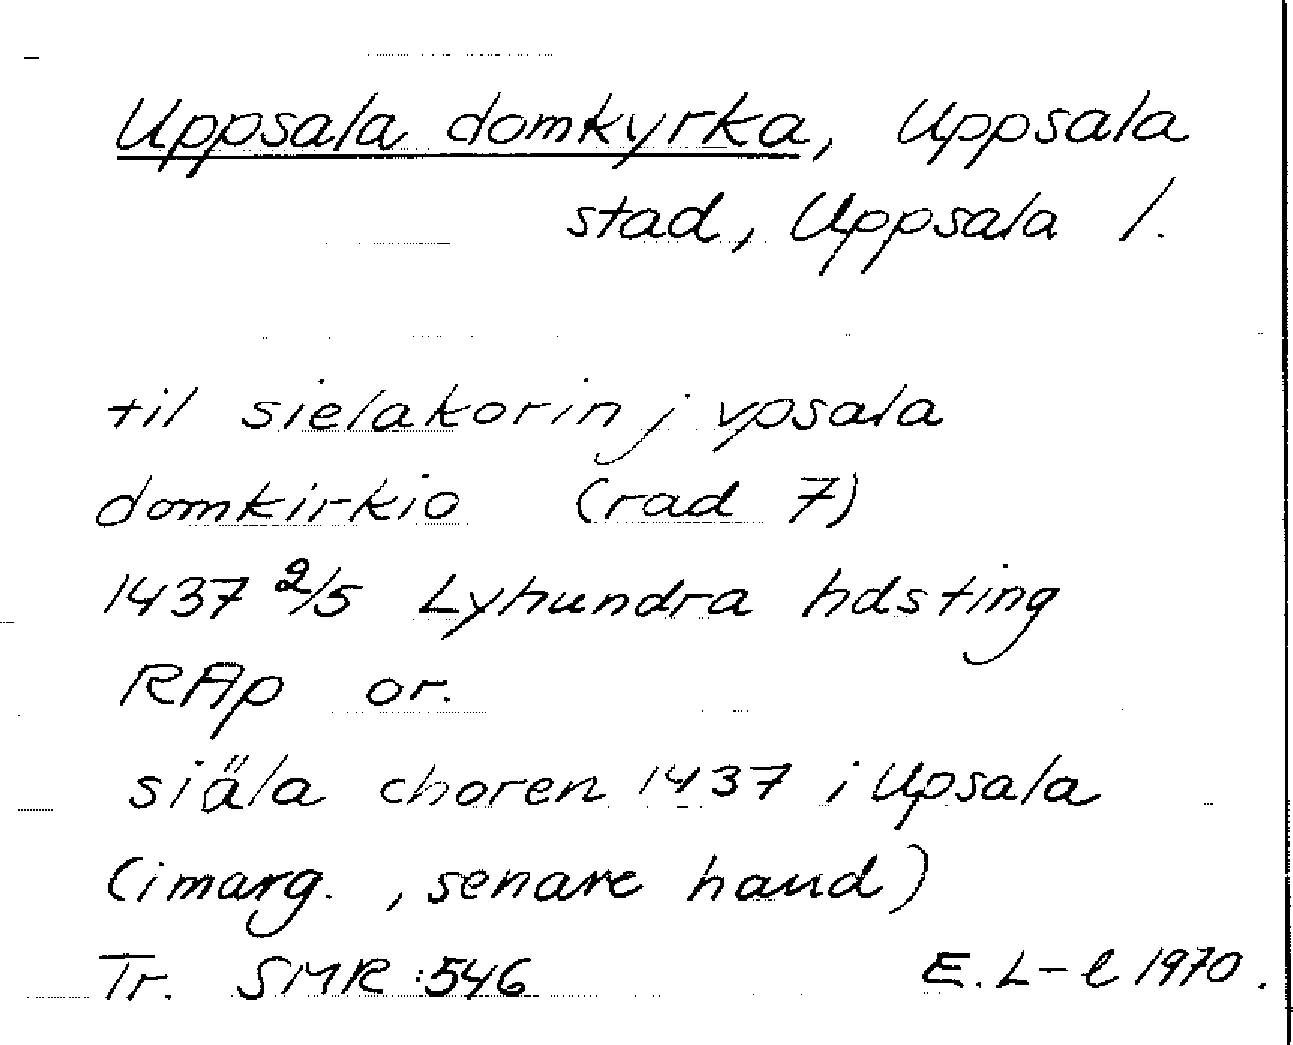 Uppsala domkyrka, Uppsala
stad, Uppsala l.
til sielakorin j vpsala
domkirkio (rad 7)
1437 2/5 Lyhundra hdsting
RAp or.
siäla choren 1437 i Upsala
(i marg. , senare hand)
Tr. SMR :546 E. L-l 1970.